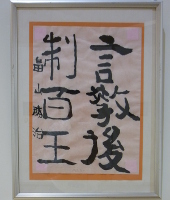 言教後
制百王
畠山勝治